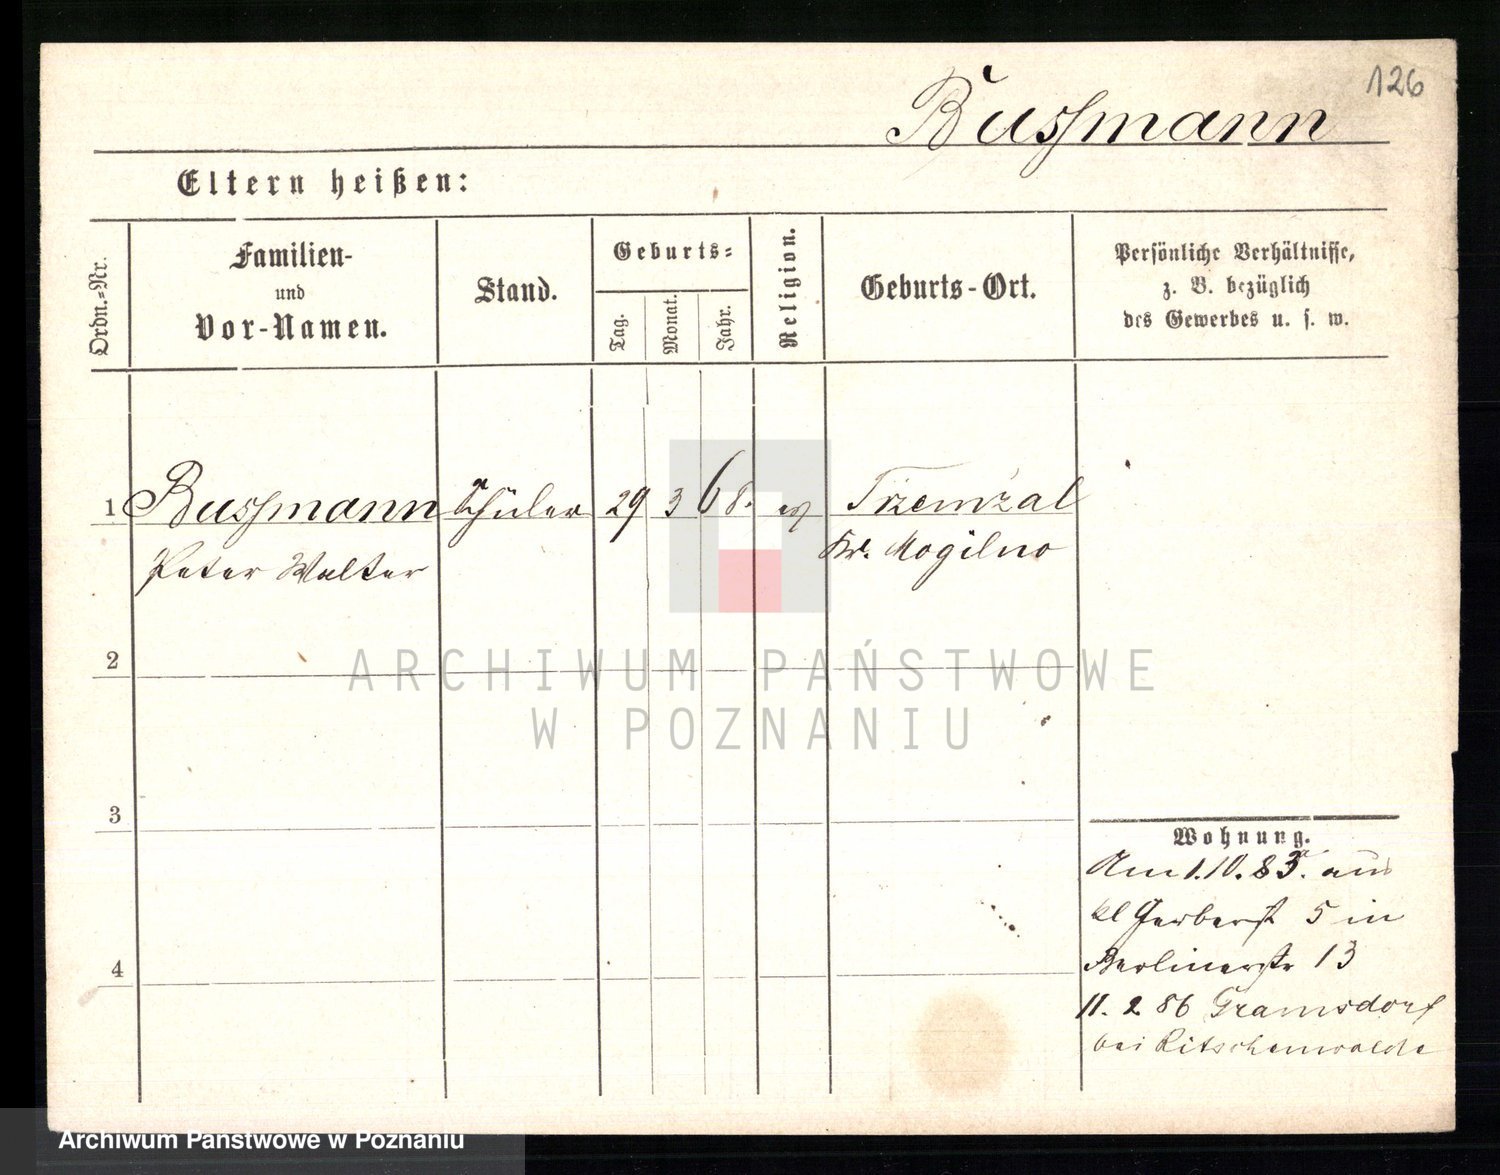 126
Bussmann
Eltern heißen:
Ordn.=Nr.
Familien-
und
Vor-Namen.
Stand.
Geburts=
Tag.
Monat.
Jahr.
Religion.
Geburts-Ort.
Persönliche Verhältnisse,
z. B. bezüglich
des Gewerbes u. s. w.
1 Bussmann Schüler 29 3 68. ev Trzemżal
Peter Walter Kr. Mogilno
2
ARCHIWUM PAŃSTWOWE
W POZNANIU
3
Wohnung.
Am 1.10.83. aus
kl Gerberst 5 in
Berlinerstr 13
4
11. 2 86 Gramsdorf
bei Ritschenwalde
Archiwum Państwowe w Poznaniu